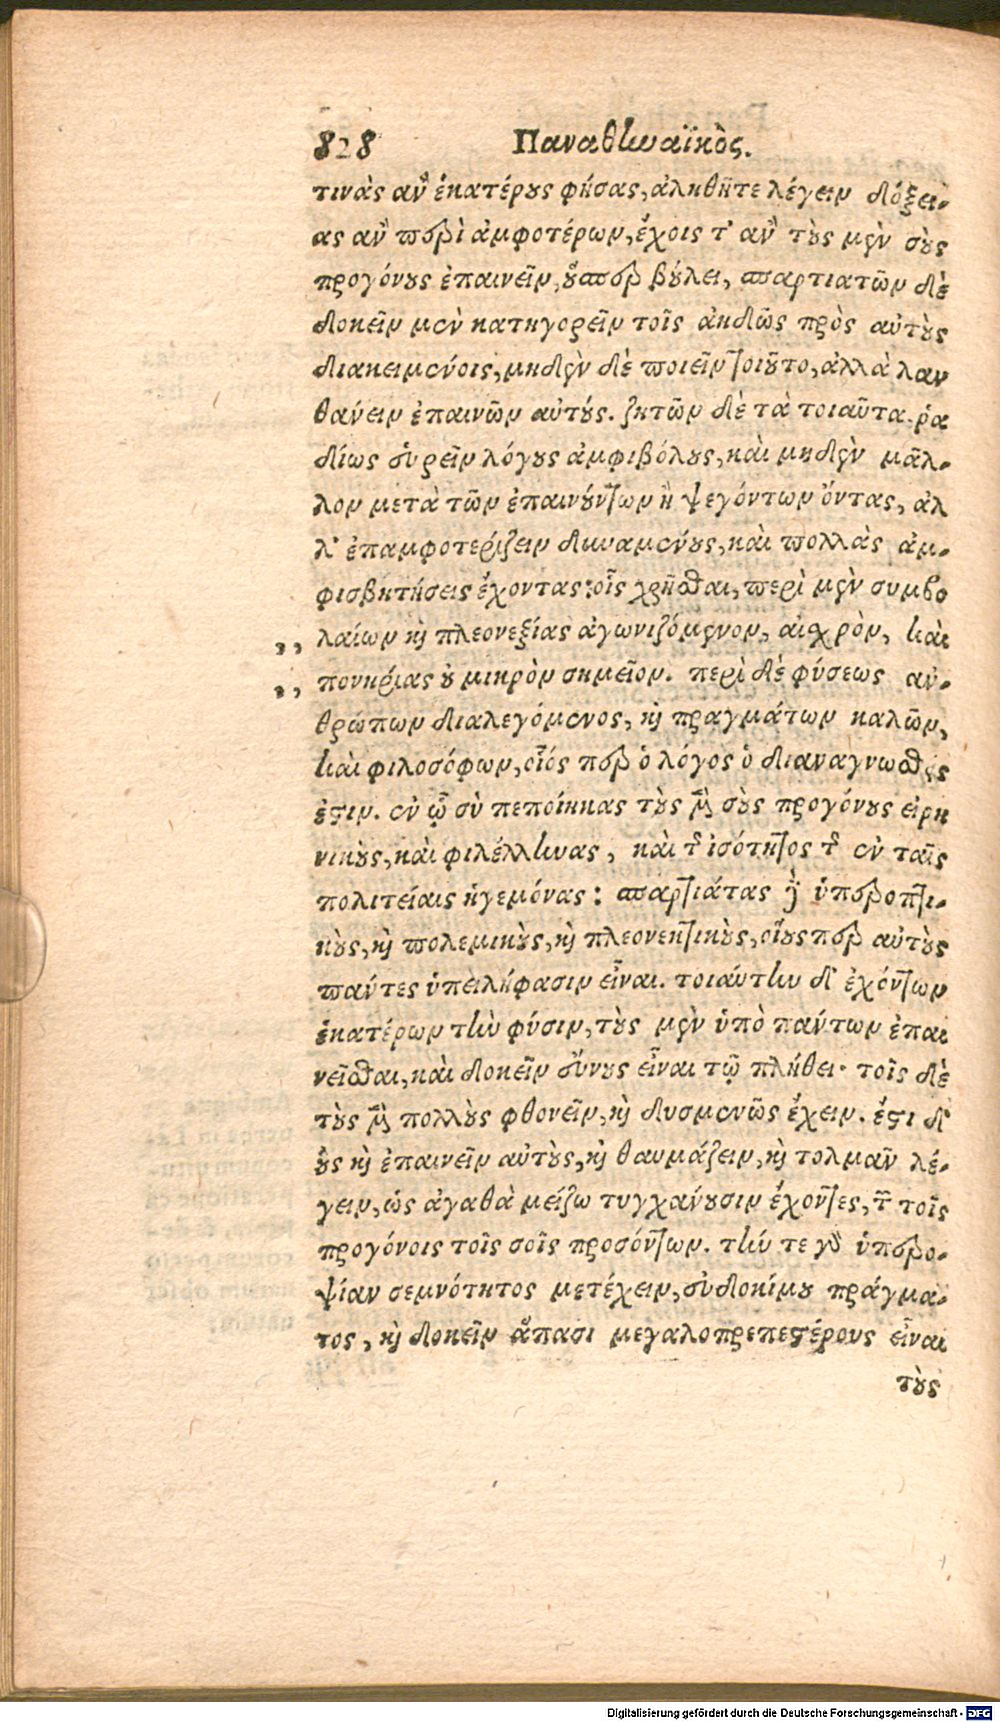 828 Παναθηναϊκὸς.
τινὰς ἂν ἑκατέρους φήσας, ἀληθῆ τε λέγειν δόξει-
ας ἂν περὶ ἀμφοτέρων, ἔχοις τ' ἂν τοὺς μὲν σοὺς
προγόνους ἐπαινεῖν, οὕσπερ βούλει, σπαρτιατῶν δὲ
δοκεῖν μὲν κατηγορεῖν τοῖς ἀηδῶς πρὸς αὐτοὺς
διακειμένοις, μηδὲν δὲ ποιεῖν τοιοῦτο, ἀλλὰ λαν
θάνειν ἐπαινῶν αὐτούς. ζητῶν δὲ τὰ τοιαῦτα, ῥα
δίως εὑρεῖν λόγους ἀμφιβόλους, καὶ μηδὲν μᾶλ-
λον μετὰ τῶν ἐπαινούντων ἢ ψεγόντων ὄντας, ἀλ
λ' ἐπαμφοτερίζειν δυναμένους, καὶ πολλὰς ἀμ-
φισβητήσεις ἔχοντας: οἷς χρῆσθαι, περὶ μὲν συμβο
,, λαίων καὶ πλεονεξίας ἀγωνιζόμενον, αἰσχρὸν, καὶ
,, πονηρίας οὐ μικρὸν σημεῖον. περὶ δὲ φύσεως ἀν-
θρώπων διαλεγόμενος, καὶ πραγμάτων καλῶν,
καὶ φιλοσόφων, οἷός περ ὁ λόγος ὁ διαναγνωσθείς
ἐστιν. ἐν ᾧ σὺ πεποίηκας τοὺς μὲν σοὺς προγόνους εἰρη
νικοὺς, καὶ φιλέλληνας, καὶ τῆς ἰσότητος τῆς ἐν ταῖς
πολιτείαις ἡγεμόνας: σπαρτιάτας δὲ ὑπεροπτι-
κοὺς, καὶ πολεμικοὺς, καὶ πλεονεκτικοὺς, οἵους περ αὐτοὺς
πάντες ὑπειλήφασιν εἶναι. τοιαύτην δ' ἐχόντων
ἑκατέρων τὴν φύσιν, τοὺς μὲν ὑπὸ πάντων ἐπαι
νεῖσθαι, καὶ δοκεῖν εὔνους εἶναι τῷ πλήθει· τοῖς δὲ
τοὺς μὲν πολλοὺς φθονεῖν, καὶ δυσμενῶς ἔχειν. ἔστι δ'
οὓς καὶ ἐπαινεῖν αὐτοὺς, καὶ θαυμάζειν, καὶ τολμᾶν λέ-
γειν, ὡς ἀγαθὰ μείζω τυγχάνουσιν ἔχοντες, τῶν τοῖς
προγόνοις τοῖς σοῖς προσόντων. τήν τε γὰρ ὑπερο-
ψίαν σεμνότητος μετέχειν, εὐδοκίμου πράγμα-
τος, καὶ δοκεῖν ἅπασι μεγαλοπρεπεστέρους εἶναι
τοὺς
Digitalisierung gefördert durch die Deutsche Forschungsgemeinschaft - DFG